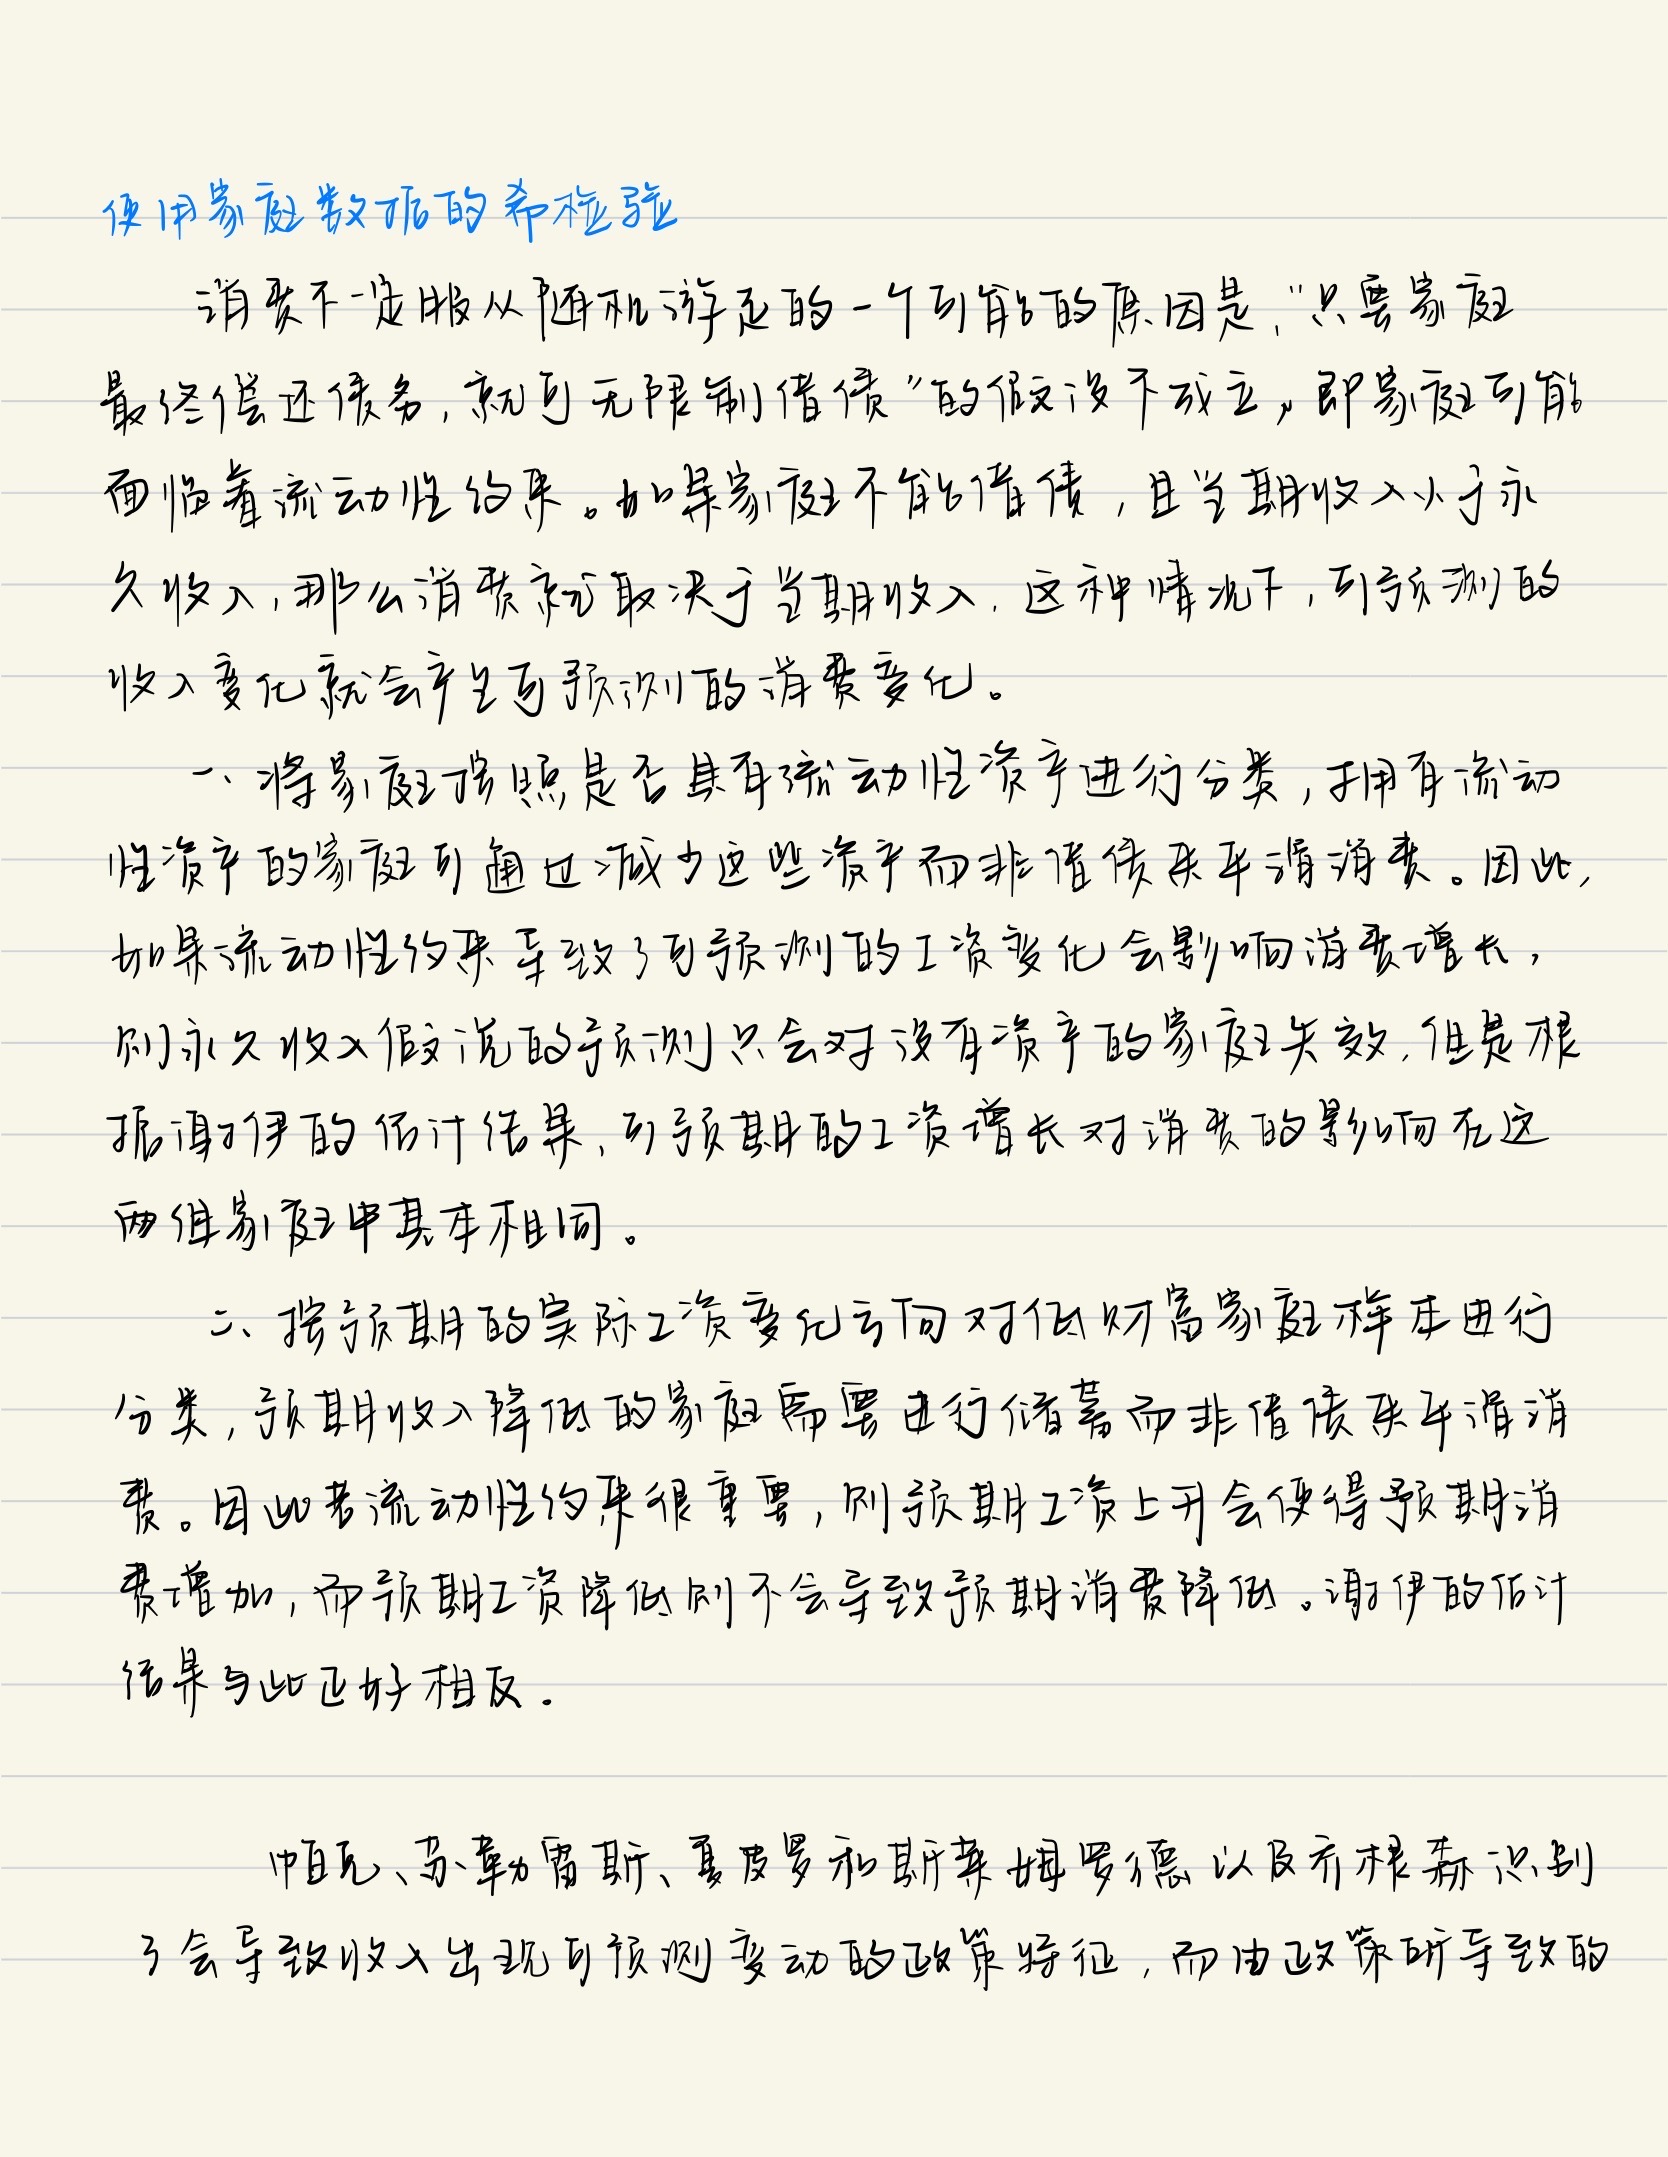 使用家庭数据的希检验
消费不一定服从随机游走的一个可能的原因是，“只要家庭
最终偿还债务，就可无限制借债”的假设不成立，即家庭可能
面临着流动性约束。如果家庭不能借债，且当期收入小于永
久收入，那么消费就取决于当期收入，这种情况下，可预测的
收入变化就会产生可预测的消费变化。
一、将家庭按照是否具有流动性资产进行分类，拥有流动
性资产的家庭可通过减少这些资产而非借债来平滑消费。因此，
如果流动性约束导致了可预测的工资变化会影响消费增长，
则永久收入假说的预测只会对没有资产的家庭失效，但是根
据谢伊的估计结果，可预期的工资增长对消费的影响在这
两组家庭中基本相同。
二、按预期的实际工资变化方向对低财富家庭样本进行
分类，预期收入降低的家庭需要进行储蓄而非借债来平滑消
费。因此若流动性约束很重要，则预期工资上升会使得预期消
费增加，而预期工资降低则不会导致预期消费降低。谢伊的估计
结果与此正好相反．
帕克、苏勒雷斯、夏皮罗和斯莱姆罗德以及乔根森识别
了会导致收入出现可预测变动的政策特征，而由政策所导致的